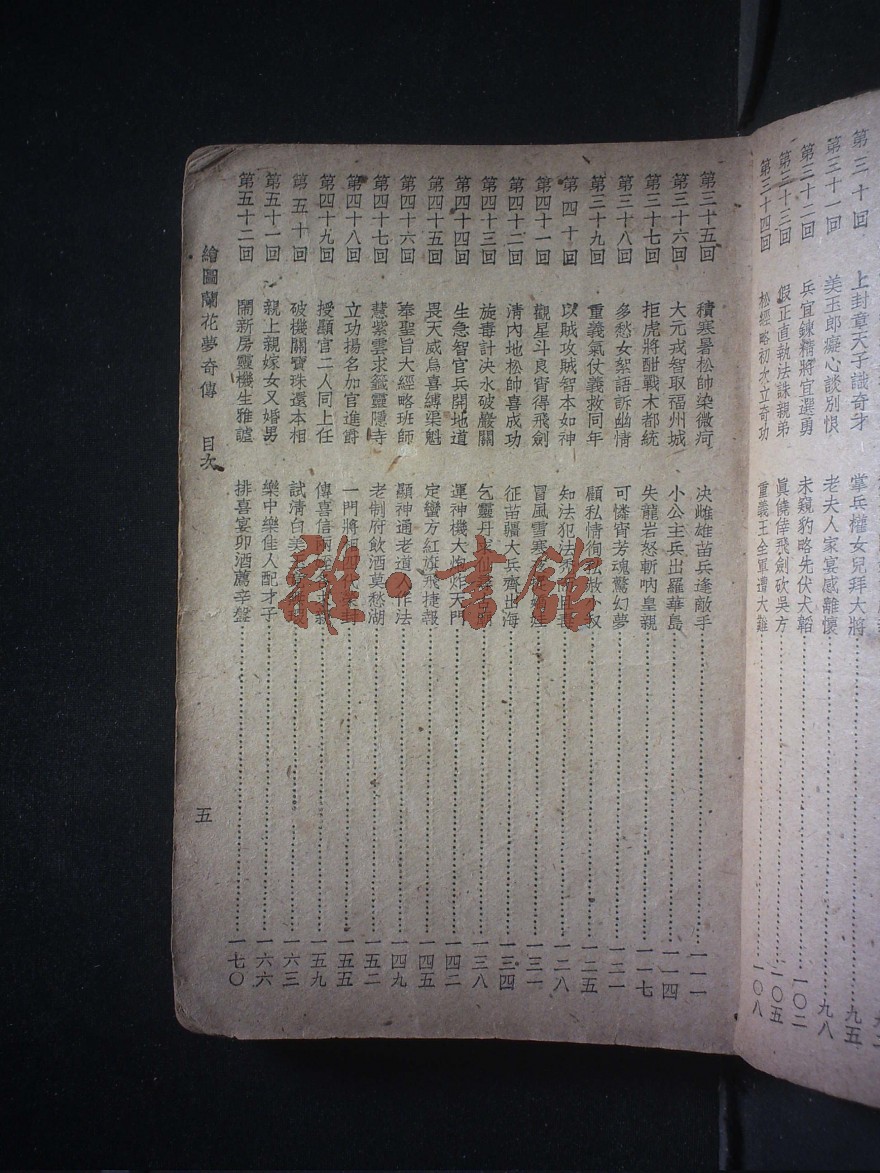 第三十回 上封章天子識奇才 掌兵權女兒拜大將 九五
第三十一回 美玉郎癡心談別恨 老夫人家宴感離懷 九八
第三十二回 兵宜鍊精將宜選勇 未窺豹略先伏犬韜 一〇二
第三十三回 假正直執法誅親弟 眞僥倖飛劍砍吳方 一〇五
第三十四回 松經略初次立奇功 重義王全軍遭大難 一〇八
第三十五回 積寒暑松帥染微疴 決雌雄苗兵逢敵手 一一一
第三十六回 大元戎智取福州城 小公主兵出羅華島 一一四
第三十七回 拒虎將酣戰木都統 失龍岩怒斬吶皇親 一一七
第三十八回 多愁女絮語訴幽情 可憐宵芳魂驚幻夢 一二一
第三十九回 重義氣仗義救同年 顧私情徇私赦小叔 一二五
第四十回 以賊攻賊智本如神 知法犯法 一二八
第四十一回 觀星斗良宵得飛劍 冒風雪寒 一三一
第四十二回 清內地松帥喜成功 征苗疆大兵齊出海 一三四
第四十三回 旋毒計決水破嚴關 乞靈丹 一三八
第四十四回 生急智官兵開地道 運神機大炮炸天門 一四二
第四十五回 畏天威烏喜縛渠魁 定蠻方紅旗飛捷報 一四五
第四十六回 奉聖旨大經略班師 顯神通老道人作法 一四九
第四十七回 慧紫雲求籤靈隱寺 老制府飲酒莫愁湖 一五二
第四十八回 立功揚名加官進爵 一門將相 一五五
第四十九回 授顯官二人同上任 傳喜信兩 一五九
第五十回 破機關寶珠還本相 試清白美 一六三
第五十一回 親上親嫁女又婚男 樂中樂佳人配才子 一六六
第五十二回 鬧新房靈機生雅謔 排喜宴卯酒薦辛盤 一七〇
繪圖蘭花夢奇傳 目次 五
雜·書館